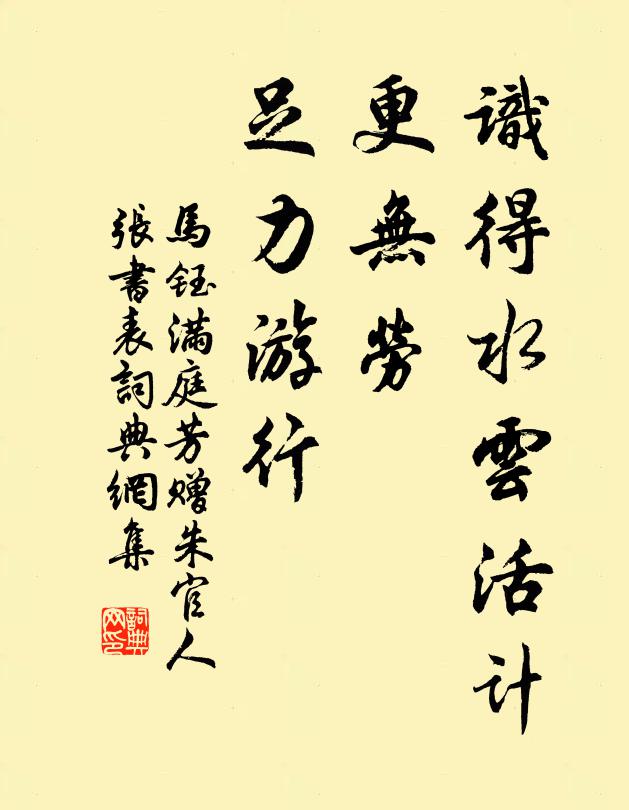 識得水雲活計
更無勞
足力游行
馬鈺滿庭芳贈朱官人
張書表詞典網集
詞典
网印